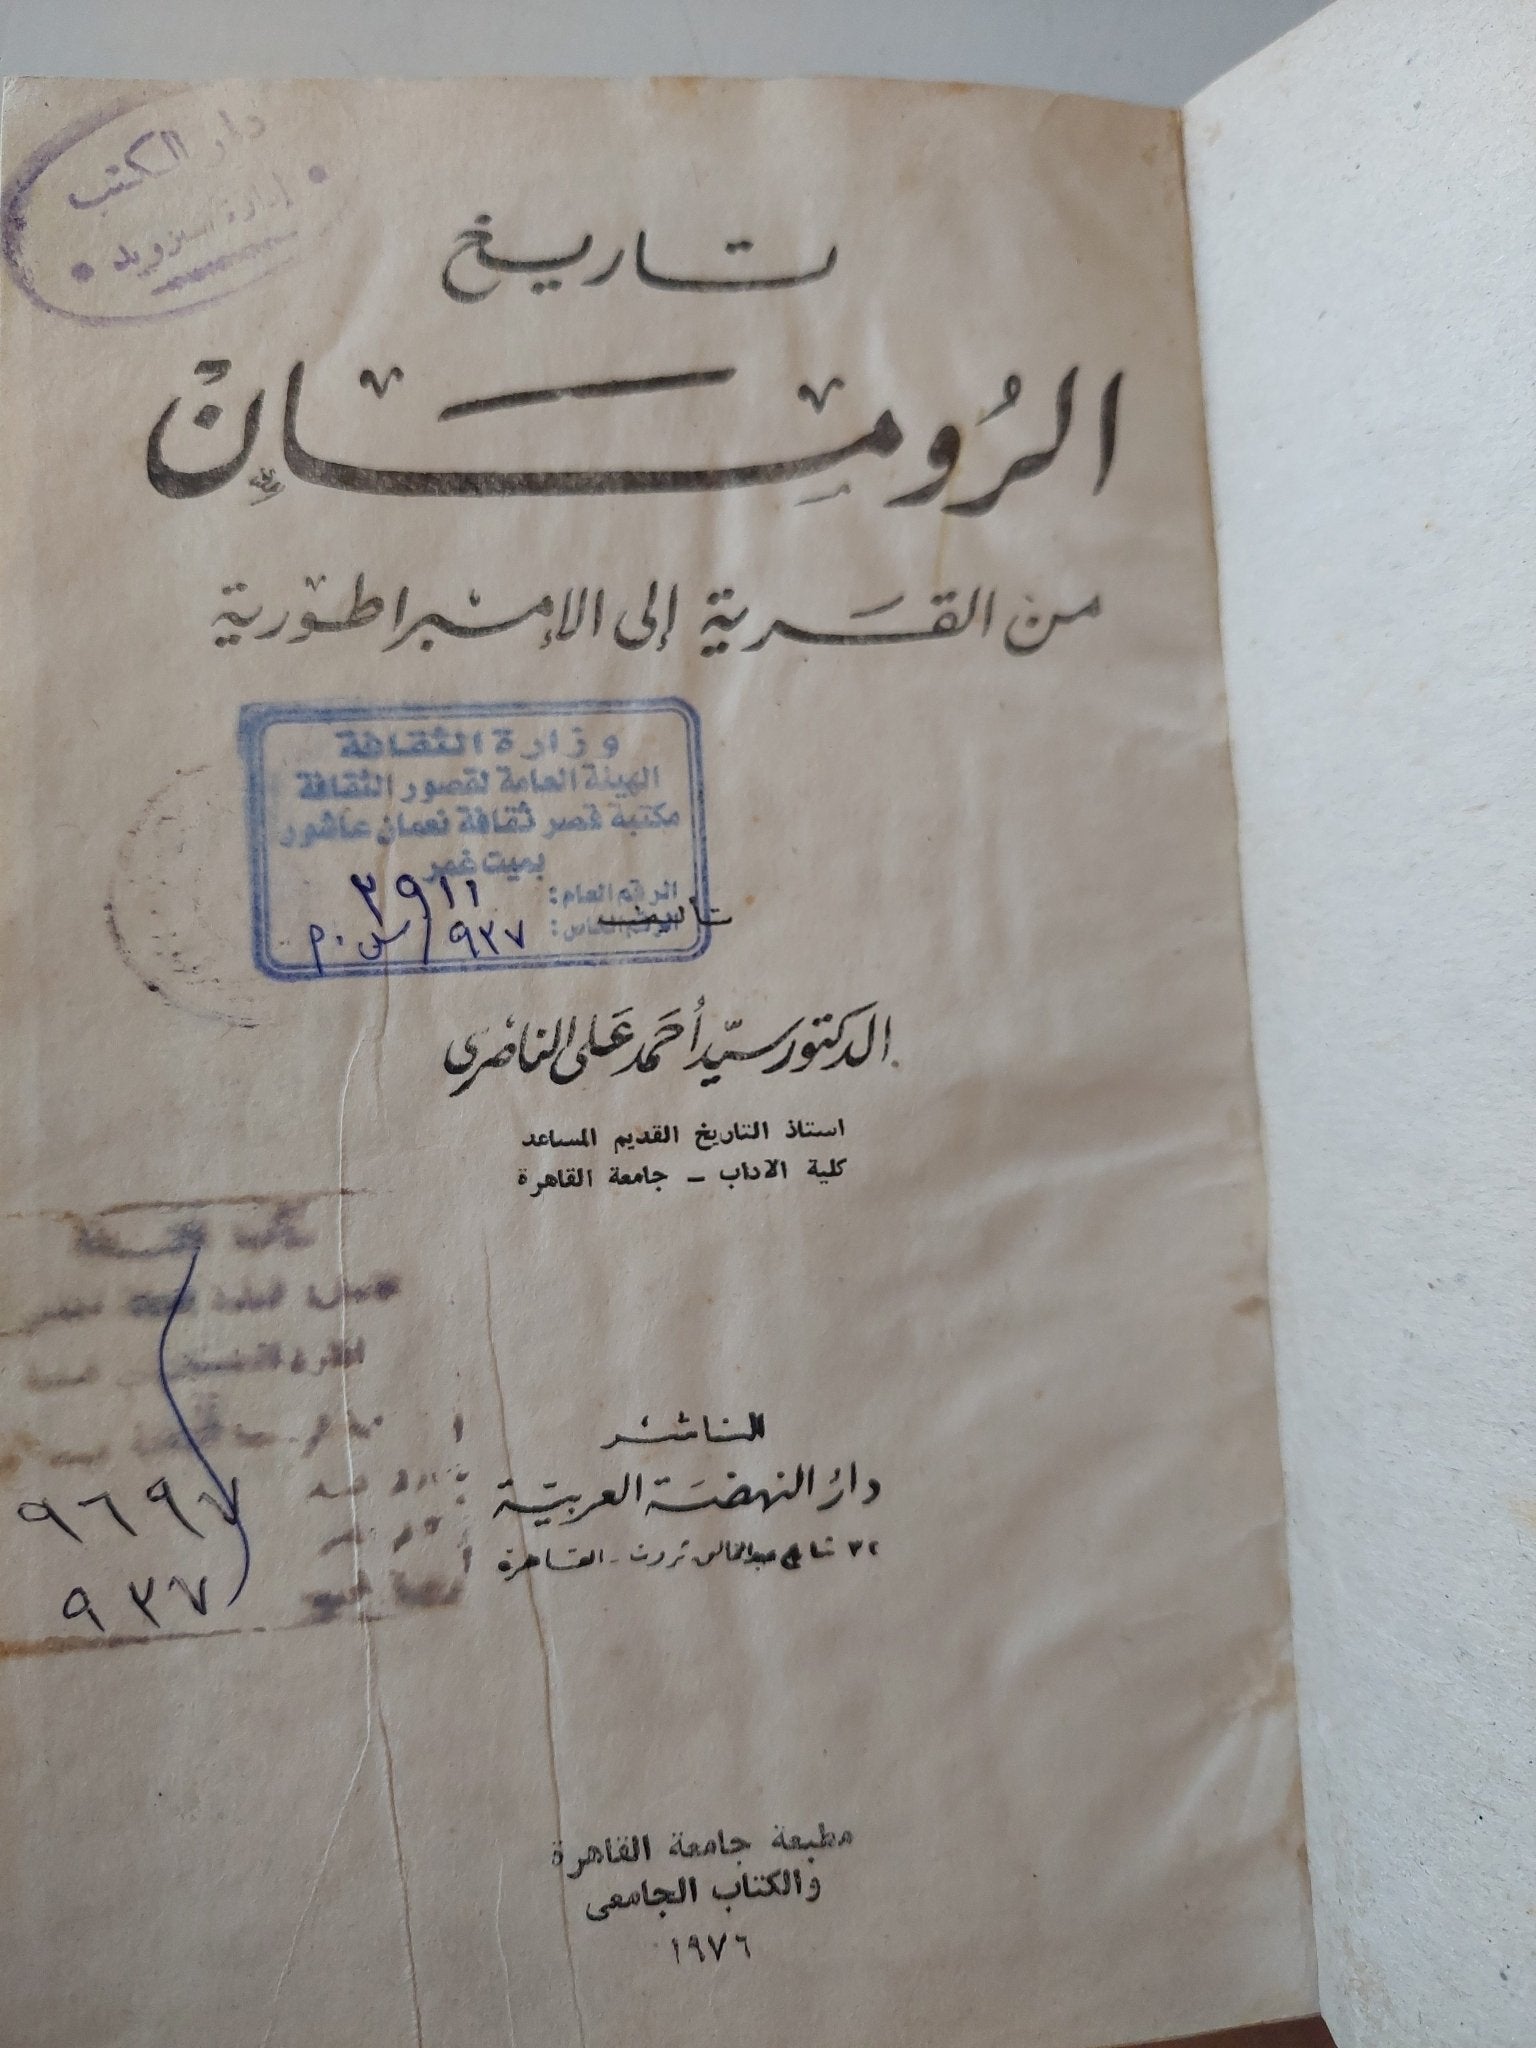 دار الكتب
إدارة التزويد
تاريخ
الرُومَان
من القَرية إلى الإمبراطورية
وزارة الثقافة
الهيئة العامة لقصور الثقافة
مكتبة قصر ثقافة نعمان عاشور
بميت غمر
الرقم العام: ٣٩١١
الرقم الخاص: ٩٣٧/س.م
تأليف
الدكتور سيّد أحمَد عَلى الناصرى
استاذ التاريخ القديم المساعد
كلية الاداب – جامعة القاهرة
الناشر
دارُ النهضَة العربيّة
٣٢ شارع عبدالخالق ثروت - القاهرة
٩٦٩٧
٩٣٧
مطبعة جامعة القاهرة
والكتاب الجامعى
١٩٧٦